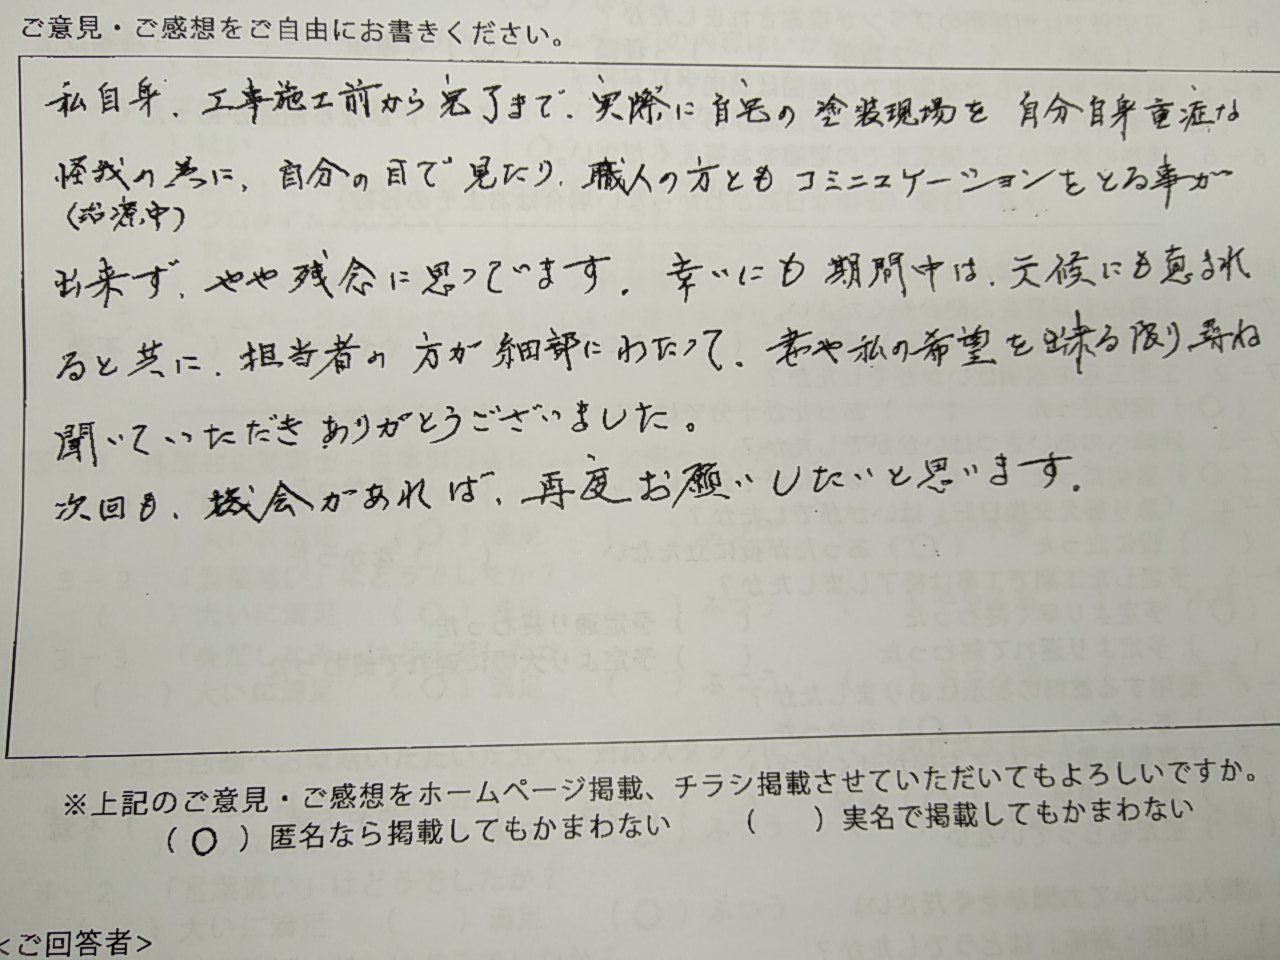 ご意見・ご感想をご自由にお書きください。
私自身、工事施工前から完了まで、実際に自宅の塗装現場を自分自身重症な
怪我の為に、自分の目で見たり、職人の方ともコミニュケーションをとる事が
(治療中)
出来ず、やや残念に思っています。幸いにも期間中は、天候にも恵まれ
ると共に、担当者の方が細部にわたって、妻や私の希望を出来る限り尋ね
聞いていただきありがとうございました。
次回も、機会があれば、再度お願いしたいと思います。
※上記のご意見・ご感想をホームページ掲載、チラシ掲載させていただいてもよろしいですか。
(○)匿名なら掲載してもかまわない ( )実名で掲載してもかまわない
<ご回答者>